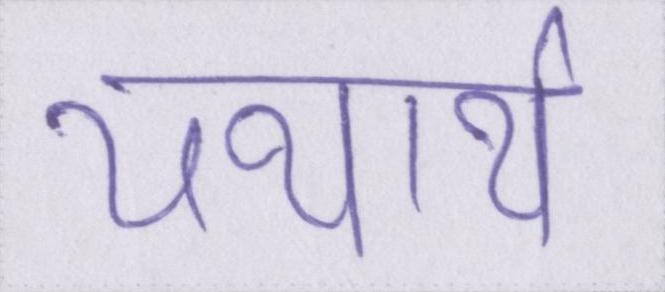 यथार्थ